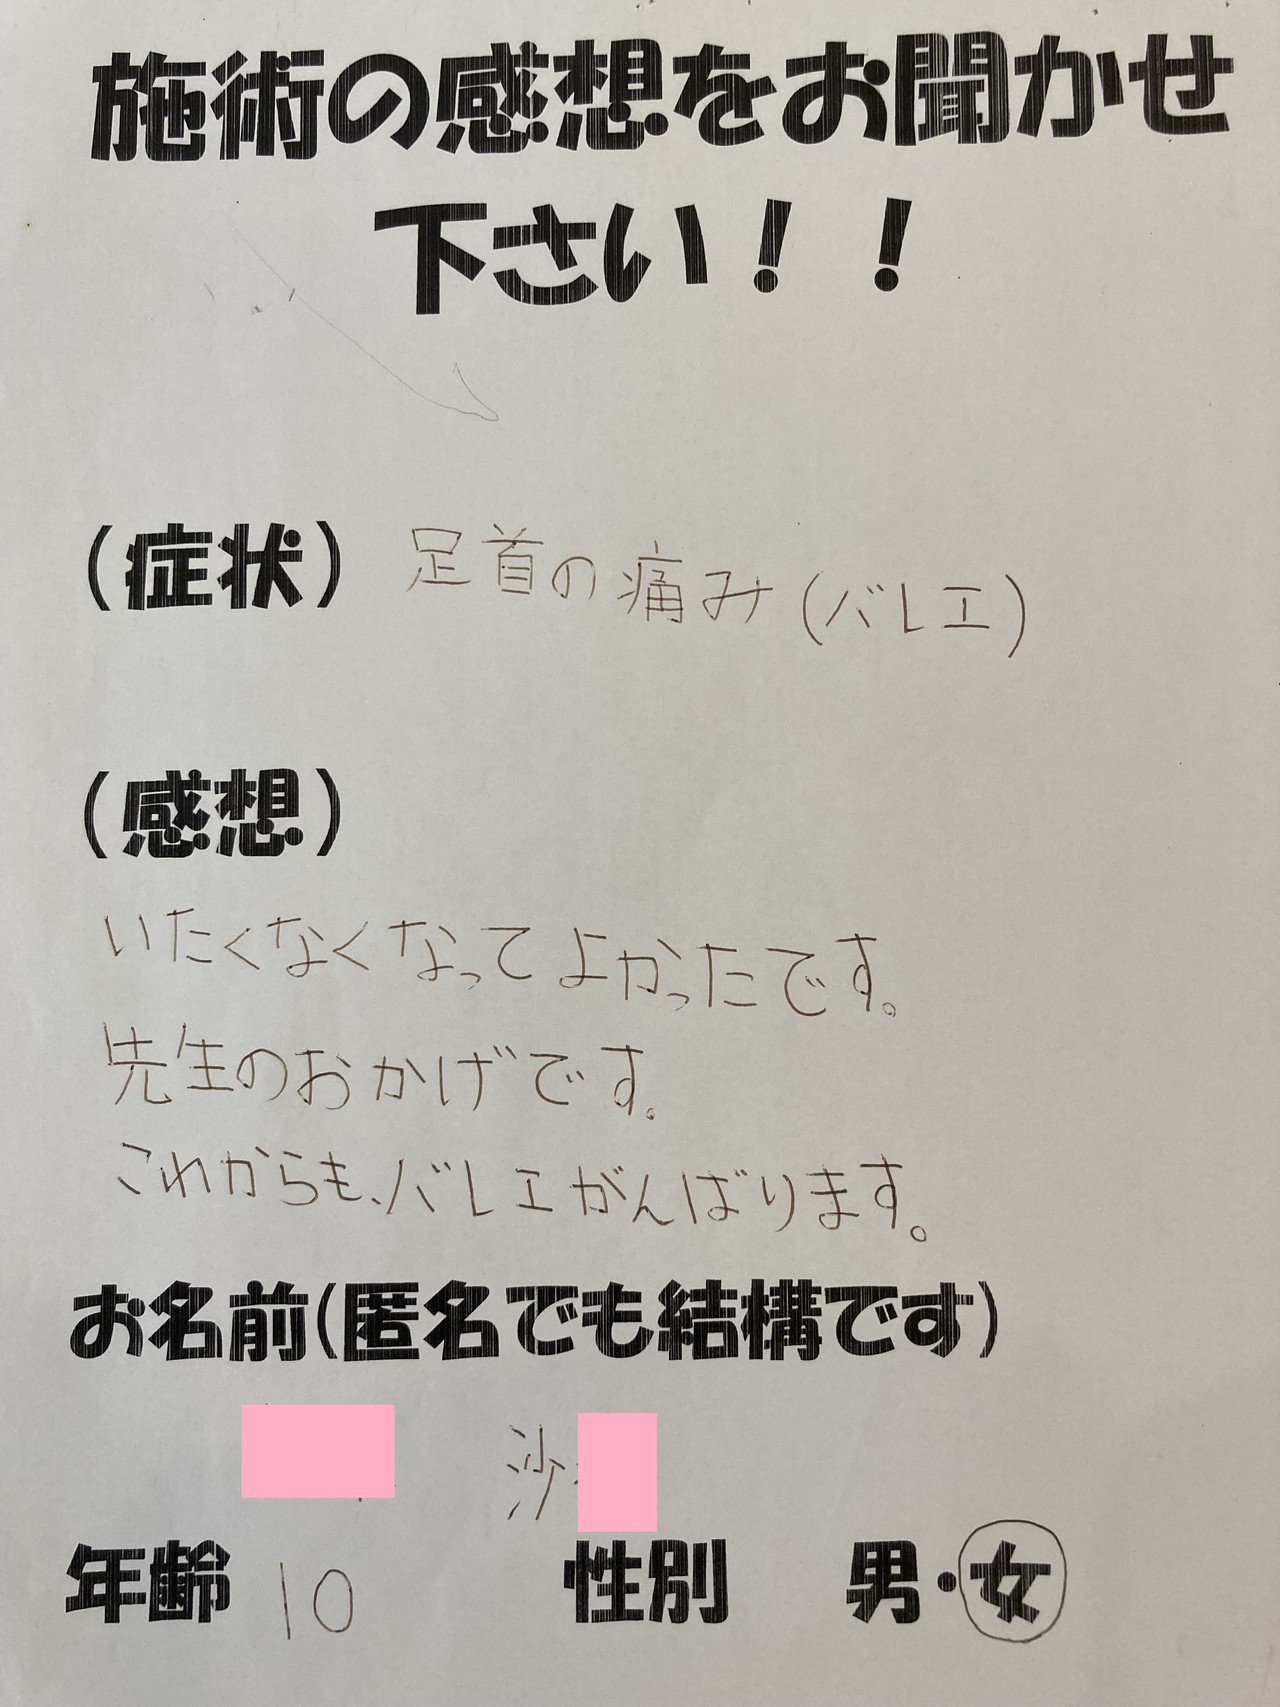 施術の感想をお聞かせ
下さい！！
（症状） 足首の痛み（バレエ）
（感想）
いたくなくなってよかったです。
先生のおかげです。
これからも、バレエがんばります。
お名前（匿名でも結構です）
沙
年齢 10 性別 男・女